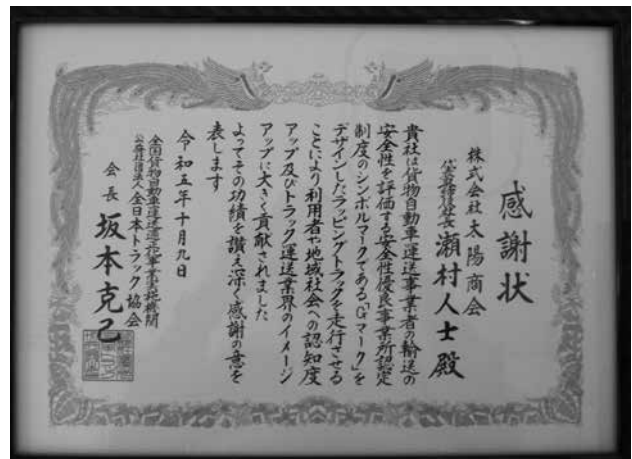 感謝状
株式会社太陽商会
代表取締役社長 瀬村人士殿
貴社は貨物自動車運送事業者の輸送の
安全性を評価する安全性優良事業所認定
制度のシンボルマークである「Gマーク」を
デザインしたラッピングトラックを走行させる
ことにより利用者や地域社会への認知度
アップ及びトラック運送業界のイメージ
アップに大きく貢献されました
よってその功績を讃え深く感謝の意を
表します
令和五年十月九日
全国貨物自動車運送適正化事業実施機関
公益社団法人全日本トラック協会
会長 坂本克己